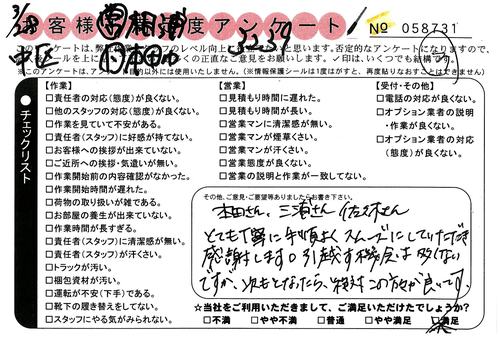 3/28
中区
お客様満足度アンケート
5239
№ 058731
このアンケートは、弊社
否定的なアンケートになりますので、
くの正直なご意見をお願いします。✓印は、いくつでも結構です。
※このアンケートは、アン
的以外には使用いたしません。(※情報保護シールは1度はがすと、再度貼りなおすことができません。)
チェックリスト
【作業】
□責任者の対応(態度)が良くない。
□他のスタッフの対応(態度)が良くない。
□作業を見ていて不安がある。
□責任者(スタッフ)に好感が持てない。
□お客様への挨拶が出来ていない。
□ご近所への挨拶・気遣いが無い。
□作業開始前の内容確認がなかった。
□作業開始時間が遅れた。
□荷物の取り扱いが雑である。
□お部屋の養生が出来ていない。
□作業時間が長すぎる。
□責任者(スタッフ)に清潔感が無い。
□責任者(スタッフ)が汗くさい。
□トラックが汚い。
□梱包資材が汚い。
□運転が不安(下手)である。
□靴下の履き替えをしてない。
□スタッフにやる気がみられない。
【営業】
□見積もり時間に遅れた。
□見積もり時間が長い。
□営業マンに清潔感が無い。
□営業マンが煙草くさい。
□営業マンが汗くさい。
□営業態度が良くない。
□営業の説明と作業が一致してない。
【受付・その他】
□電話の対応が良くない。
□オプション業者の説明
・作業が良くない。
□オプション業者の対応
(態度)が良くない。
その他、ご意見・ご要望等ありましたらお書き下さい。
本田さん、三浦さん 佐々木さん
とても丁寧に手順よくスムーズにしていただき
感謝します。引越す機会は多くない
ですが、次もとなたら、絶対この方々が良いです。
☆当社をご利用いただきまして、ご満足いただけたでしょうか?
□不満 □やや不満 □普通 □やや満足 □満足